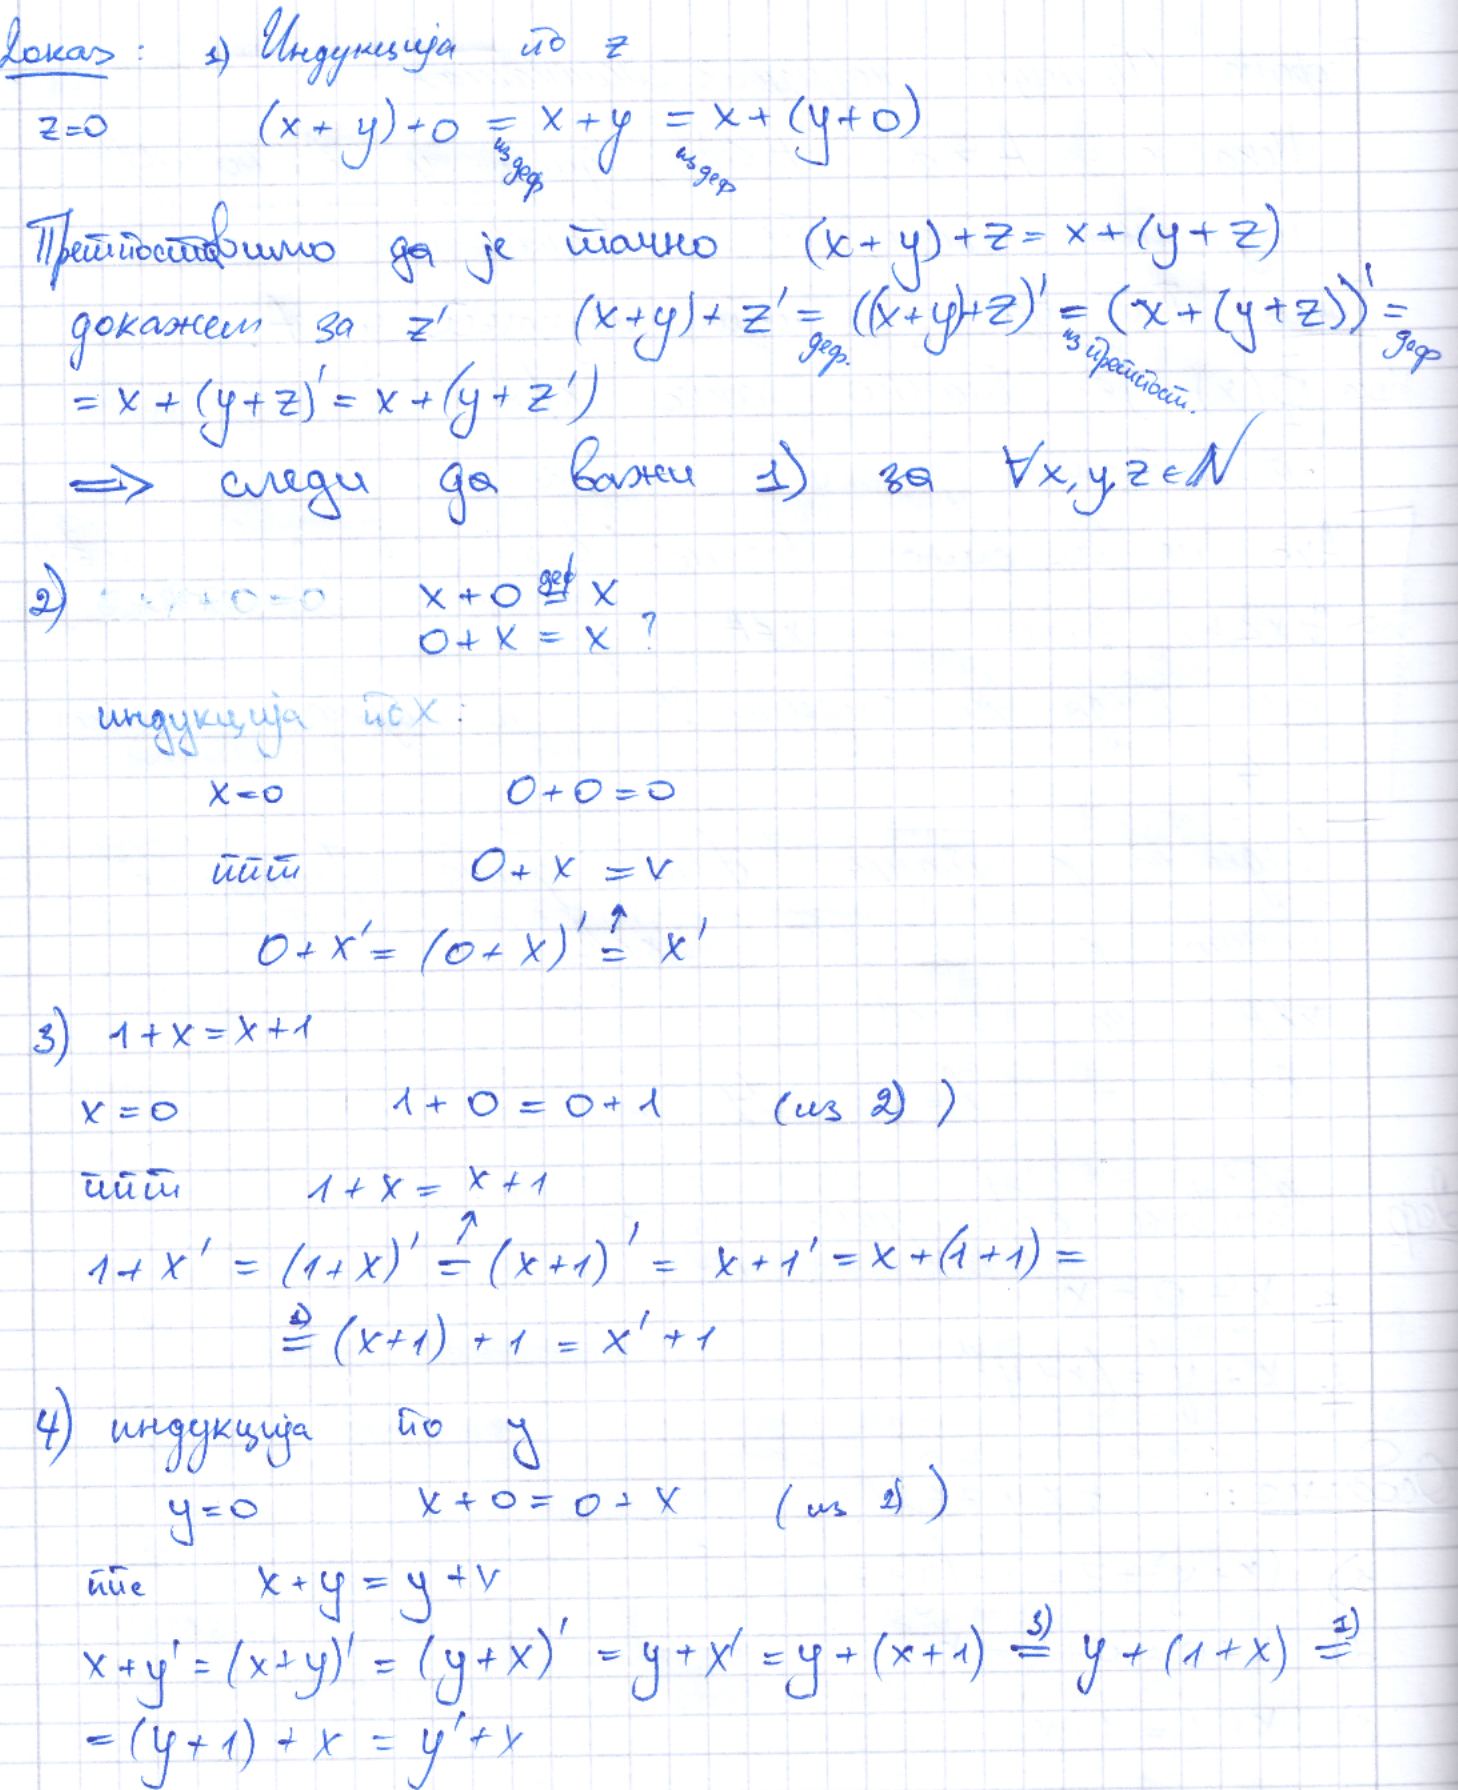 Доказ: 1) Индукција по z
z=0 (x+y)+0 = x+y = x+(y+0)
из деф из деф
Претпоставимо да је тачно (x+y)+z = x+(y+z)
докажем за z' (x+y)+z' = ((x+y)+z)' = (x+(y+z))' =
деф. из претпост. деф
= x+(y+z)' = x+(y+z')
⇒ следи да важи 1) за ∀x,y,z∈N
2) x+0 деф= x
0+x = x ?
индукција по x:
x=0 0+0=0
ппт 0+x = x
0+x' = (0+x)' = x'
3) 1+x = x+1
x=0 1+0 = 0+1 (из 2))
ппт 1+x = x+1
1+x' = (1+x)' = (x+1)' = x+1' = x+(1+1) =
1)= (x+1)+1 = x'+1
4) индукција по y
y=0 x+0 = 0+x (из 2))
x+y = y+x
x+y' = (x+y)' = (y+x)' = y+x' = y+(x+1) 3)= y+(1+x) 1)=
= (y+1)+x = y'+x